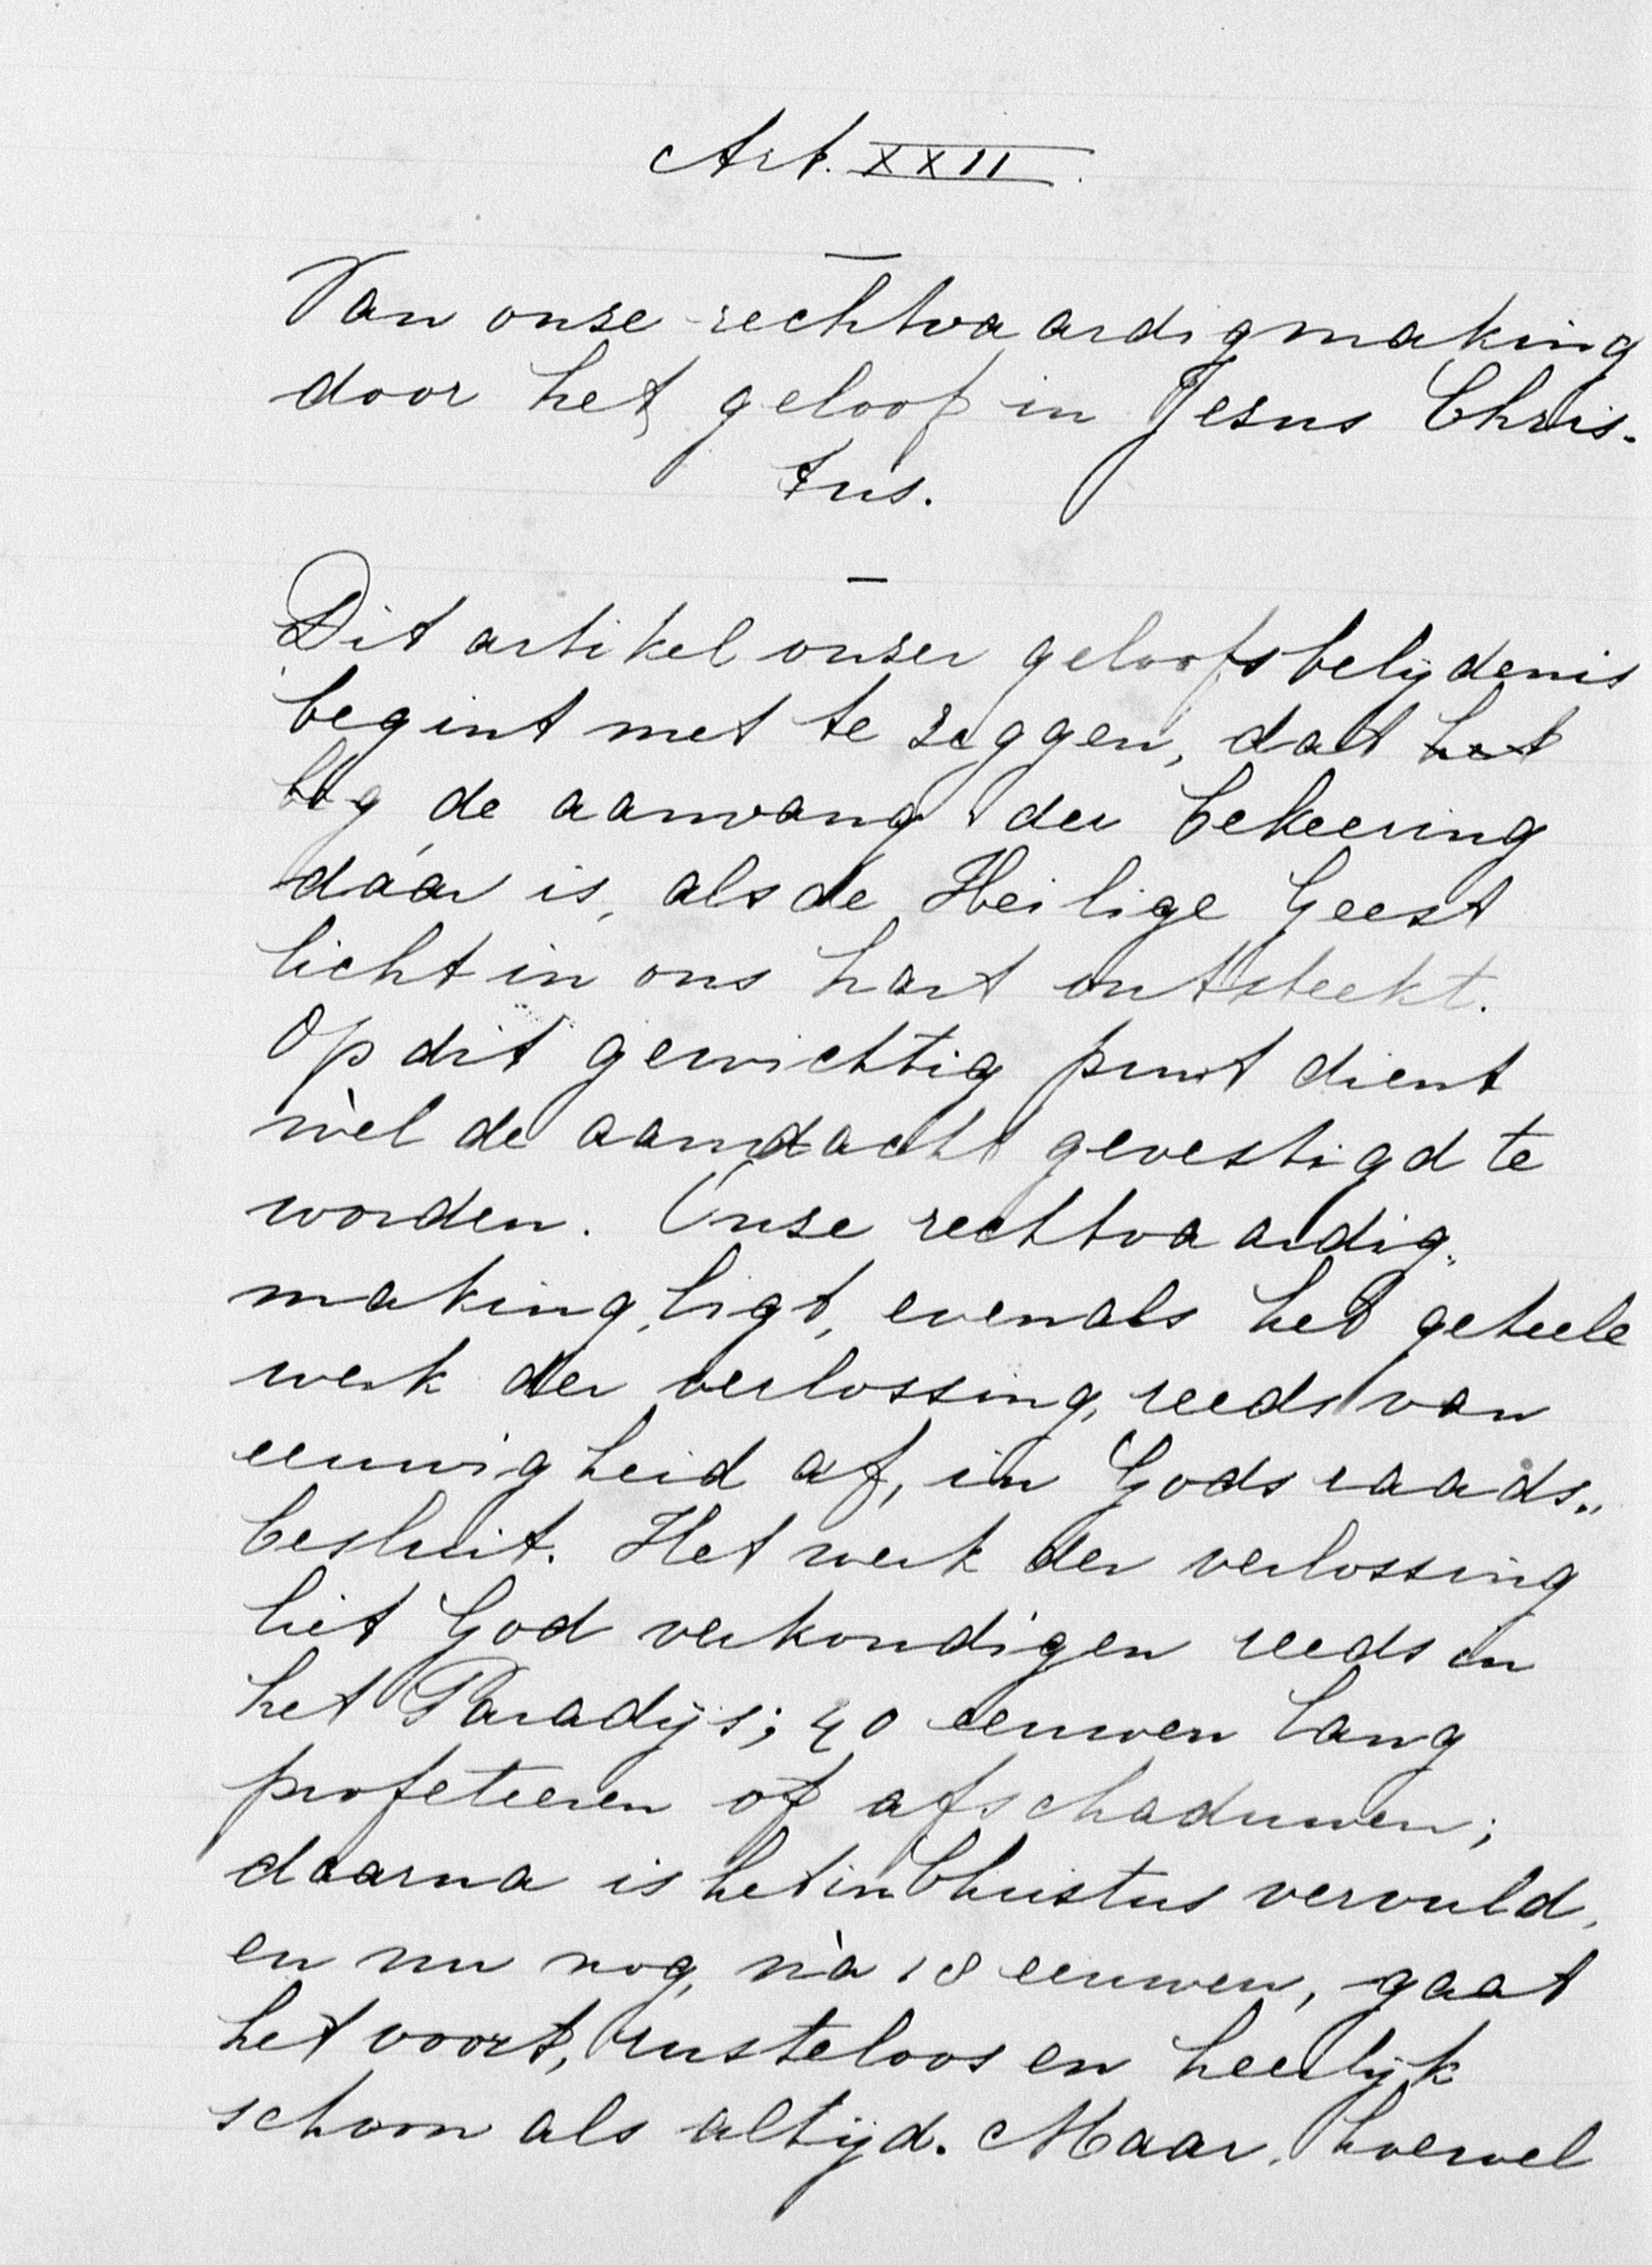 Art. XXII.
Van onze rechtvaardigmaking
door het geloof in Jezus Chris-
tus.
Dit artikel onzer geloofsbelijdenis
begint met te zeggen, dat het
bij de aanvang der bekeering
dáár is, als de Heilige Geest
licht in ons hart ontsteekt.
Op dit gewichtig punt dient
wèl de aandacht gevestigd te
worden. Onze rechtvaardig„
making, ligt, evenals het geheele
werk der verlossing, reeds van
eeuwigheid af, in Gods raads„
besluit. Het werk der verlossing
liet God verkondigen reeds in
het Paradijs; 40 eeuwen lang
profeteeren of afschaduwen;
daarna is het in Christus vervuld,
en nu nog, nà 18 eeuwen, gaat
het voort, rusteloos en heerlijk
schoon als altijd. Maar, hoewel